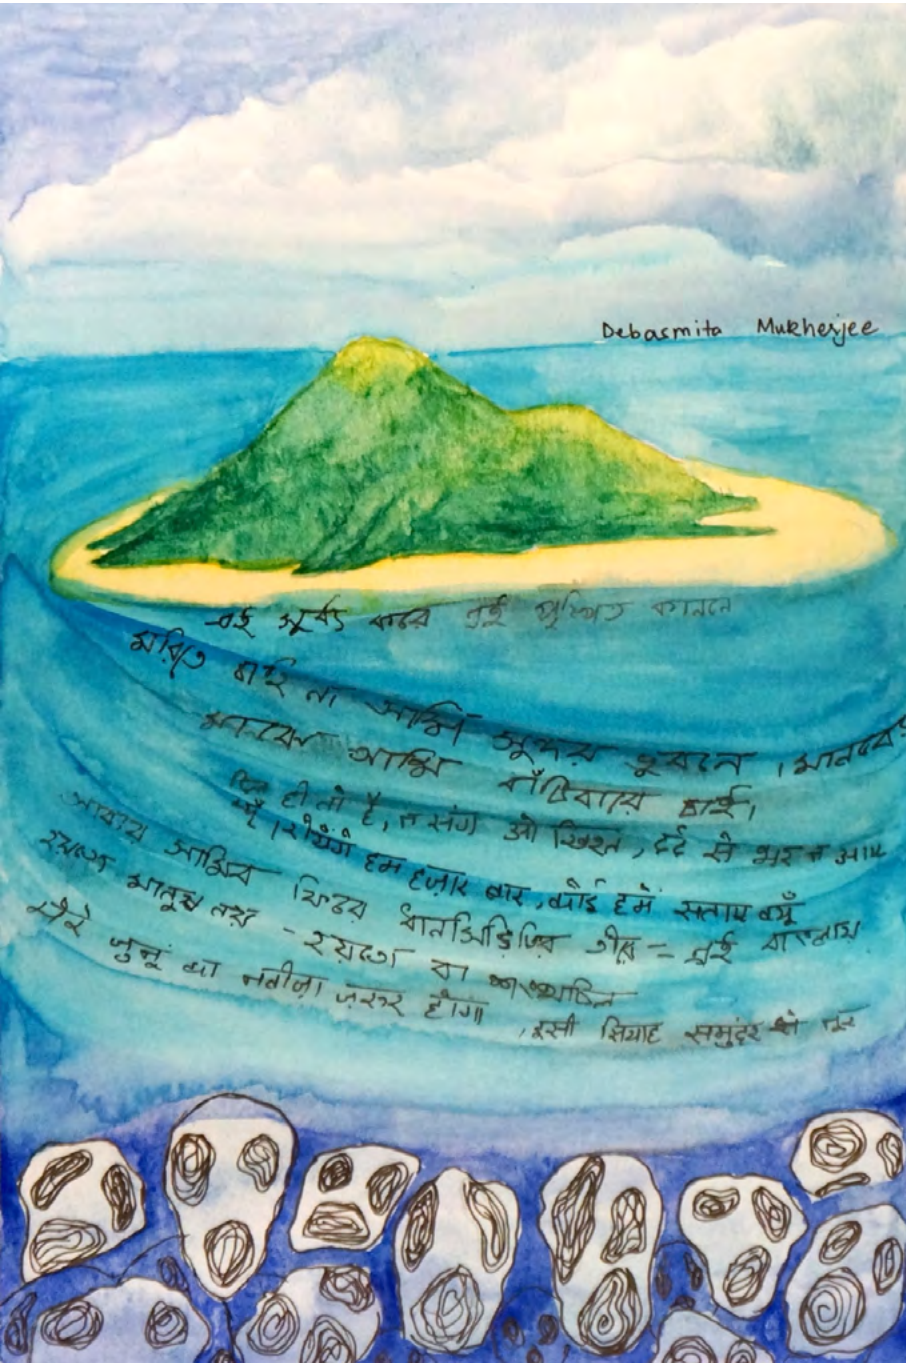 Debasmita Mukherjee
এই সূর্য করে এই পুষ্পিত কাননে
মরিতে চাহি না আমি সুন্দর ভুবনে । মানবের
মানবের আমি বাঁচিবারে চাই।
दिल ही तो है, न संग ओ खिश्त, दर्द से भर न आए
क्यूँ। रोयेंगे हम हज़ार बार, कोई हमें सताए क्यूँ
আবার আসিব ফিরে ধানসিঁড়িটির তীরে - এই বাংলায়
হয়তো মানুষ নয় - হয়তো বা শঙ্খচিল
मेरे जुनूं का नतीजा ज़रूर होगा , इसी सियाह समुंदर से नूर